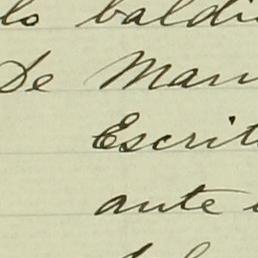 lo baldi
De Man
Escrit
ante